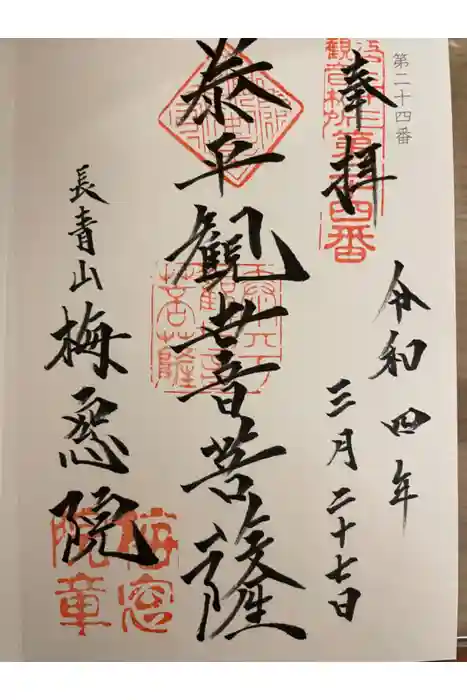 第二十四番
奉拝
令和四年
三月二十七日
泰平観世音菩薩
長青山梅窓院
第二十四番
梅窓
院章